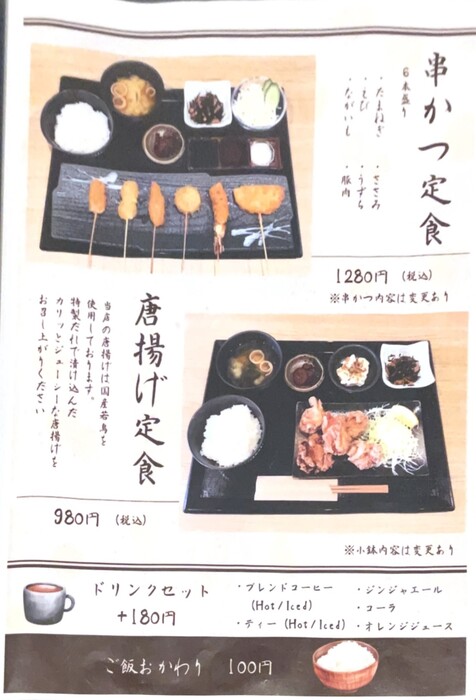 串かつ定食
6本盛り
・たまねぎ
・えび
・ながいも
・ささみ
・うずら
・豚肉
1280円（税込）
※串かつ内容は変更あり
唐揚げ定食
当店の唐揚げは国産若鳥を
使用しております。
特製だれで漬け込んだ
カリッとジューシーな唐揚げを
お召し上がりください
980円（税込）
※小鉢内容は変更あり
ドリンクセット
+180円
・ブレンドコーヒー
(Hot/Iced)
・ティー(Hot/Iced)
・ジンジャエール
・コーラ
・オレンジジュース
ご飯おかわり 100円